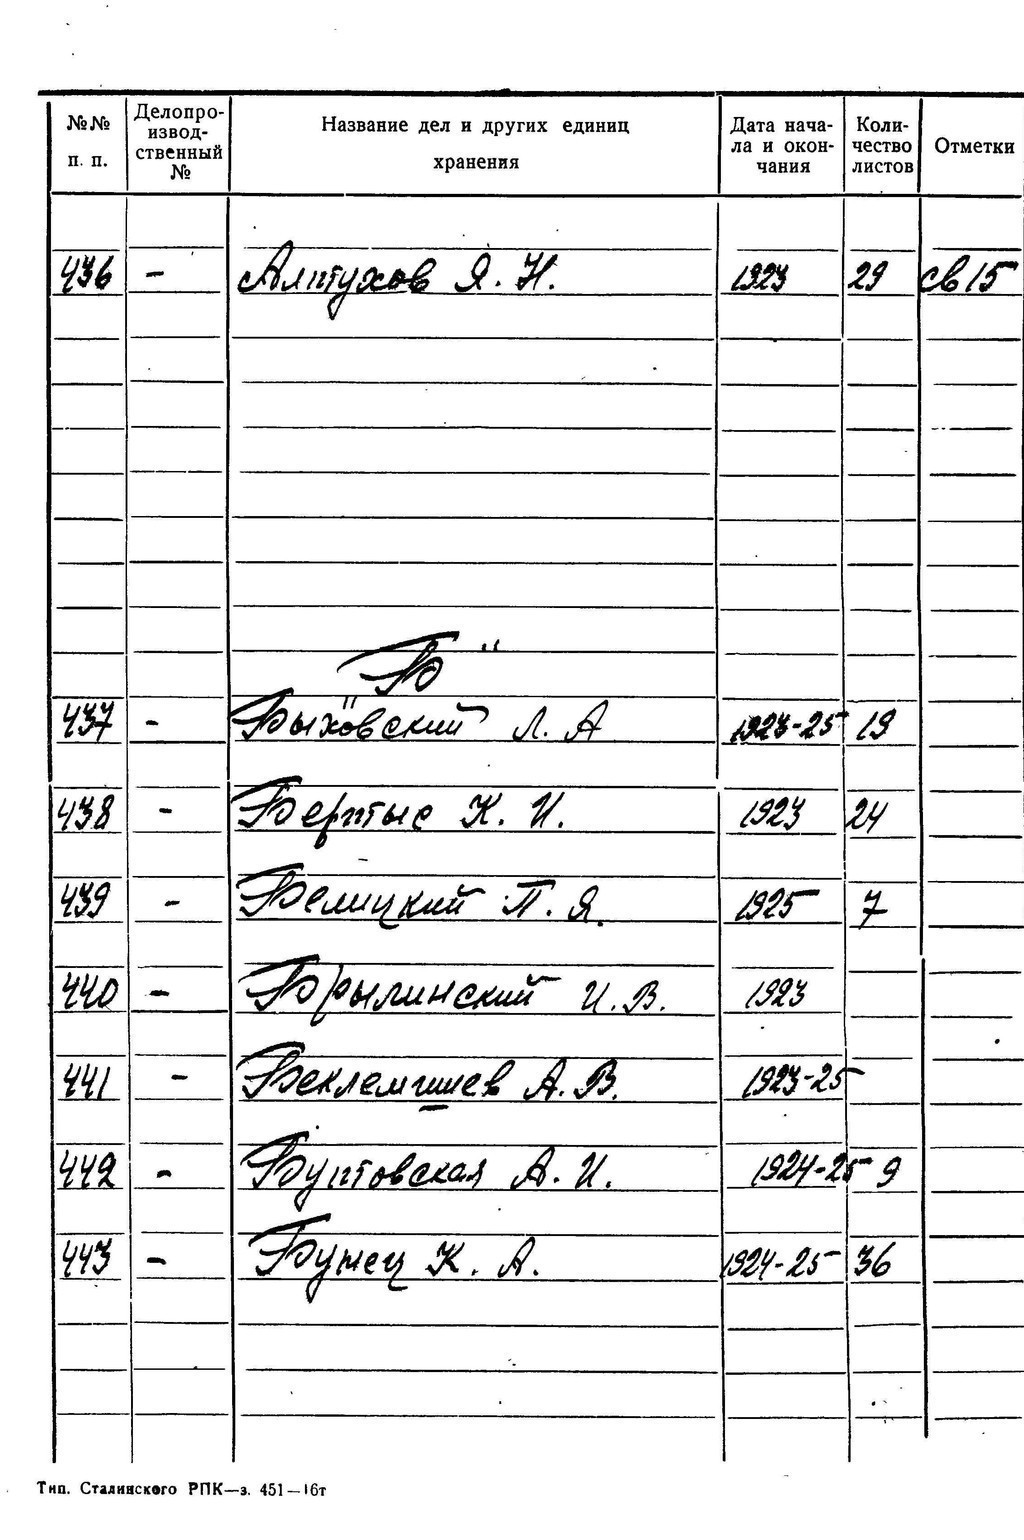 №№ п. п. Делопроизводственный № Название дел и других единиц хранения Дата начала и окончания Количество листов Отметки
436 - Алтухов Я. Н. 1923 29 св 15
"Б"
437 - Быховский Л. А 1923-25 19
438 - Бертыс К. И. 1923 24
439 - Белицкий П. Я. 1925 7
440 - Брылинский И. В. 1923
441 - Беклемишев А. В. 1923-25
442 - Бутовская А. И. 1924-25 9
443 - Бунец К. А. 1924-25 36
Тип. Сталинского РПК—з. 451—16т